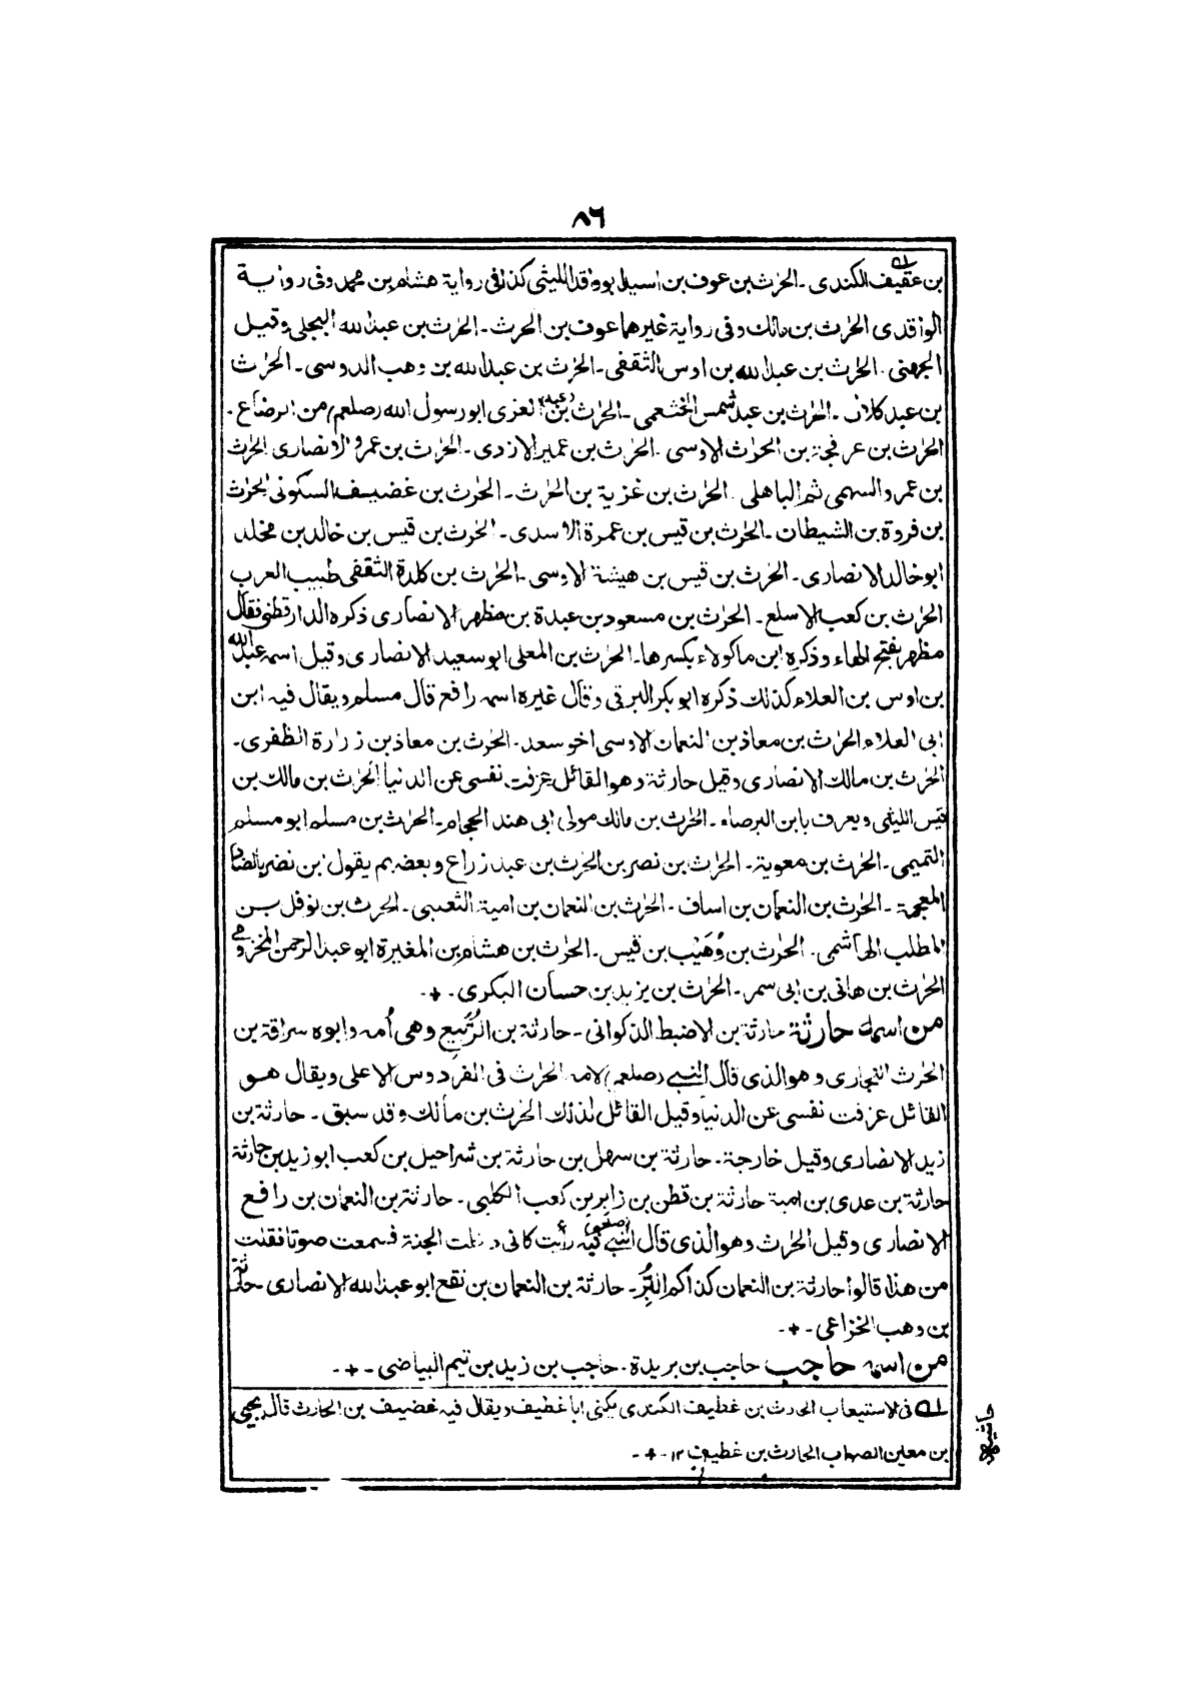 ٨٦
بن عقيف الكندى ـ الحرث بن عوف بن اسيد ابو واقد الليثى كذا فى رواية هشام بن محمد وفى رواية
الواقدى الحرث بن مالك وفى رواية غيرهما عوف بن الحرث ـ الحرث بن عبد الله البجلى وقيل
الجهنى ـ الحرث بن عبد الله بن اوس الثقفى ـ الحرث بن عبد الله بن وهب الدوسى ـ الحرث
بن عبد كلال ـ الحرث بن عبد شمس الخثعمى ـ الحرث بن (عبد) العزى ابو رسول الله (صلعم) من الرضاع ـ
الحرث بن عرفجة بن الحرث الاوسى ـ الحرث بن عمير الازدى ـ الحرث بن عمرو الانصارى الحرث
بن عمرو السهمى ثم الباهلى ـ الحرث بن غزية بن الحرث ـ الحرث بن غضيف السكونى الحرث
بن فروة بن الشيطان ـ الحرث بن قيس بن عمرة الاسدى ـ الحرث بن قيس بن خالد بن مخلد
ابو خالد الانصارى ـ الحرث بن قيس بن هيشة الاوسى ـ الحرث بن كلدة الثقفى طبيب العرب
الحرث بن كعب الاسلع ـ الحرث بن مسعود بن عبدة بن مظهر الانصارى ذكره الدارقطنى فقال
مظهر بفتح الهاء وذكره ابن ماكولاء بكسرها ـ الحرث بن المعلى ابو سعيد الانصارى وقيل اسمه عبد الله
بن اوس بن العلاء كذلك ذكره ابو بكر البرقى وقال غيره اسمه رافع قال مسلم ويقال فيه ابن
ابى العلاء الحرث بن معاذ بن النعمان الاوسى اخو سعد ـ الحرث بن معاذ بن زرارة الظفرى ـ
الحرث بن مالك الانصارى وقيل حارثة وهو القائل عزفت نفسى عن الدنيا الحرث بن مالك بن
قيس الليثى ويعرف بابن البرصاء ـ الحرث بن مالك مولى ابى هند الحجام ـ الحرث بن مسلم ابو مسلم
التميمى ـ الحرث بن معوية ـ الحرث بن نصر بن الحرث بن عبد زراع وبعضهم يقول ابن نضر بالضاد
المعجمة ـ الحرث بن النعمان بن اساف ـ الحرث بن النعمان بن امية الثعببى ـ الحرث بن نوفل بن
المطلب الهاشمى ـ الحرث بن وُهَيْب بن قيس ـ الحرث بن هشام بن المغيرة ابو عبد الرحمن المخزومى
الحرث بن هانى بن ابى سمر ـ الحرث بن يزيد بن حسان البكرى ـ + ـ
من اسمه حارثة حارثة بن الاضبط الذكوانى ـ حارثة بن الرُّبَيِّع وهى أمه وابوه سراقة بن
الحرث النجارى وهو الذى قال النبى (صلعم) لامه الحرث فى الفردوس الاعلى ويقال هو
القائل عزفت نفسى عن الدنيا وقيل القائل لذلك الحرث بن مالك وقد سبق ـ حارثة بن
زيد الانصارى وقيل خارجة ـ حارثة بن سهل بن حارثة بن شراحيل بن كعب ابو زيد بن حارثة
حارثة بن عدى بن امية حارثة بن قطن بن زابر بن كعب الكلبى ـ حارثة بن النعمان بن رافع
الانصارى وقيل الحرث وهو الذى قال النبى (صلعم) فيه رأيت كانى دخلت الجنة فسمعت صوتا فقلت
من هذا قالوا حارثة بن النعمان كذاكم البِرُّ ـ حارثة بن النعمان بن نقع ابو عبد الله الانصارى حارثة
بن وهب الخزاعى ـ + ـ
من اسمه حاجب حاجب بن بريدة ـ حاجب بن زيد بن تيم البياضى ـ + ـ
له فى الاستيعاب الحارث بن غطيف الكندى يكنى ابا غطيف ويقال فيه غضيف بن الحارث قال يحيى
بن معين الصواب الحارث بن غطيف ١٢ ـ + ـ
حاشيه